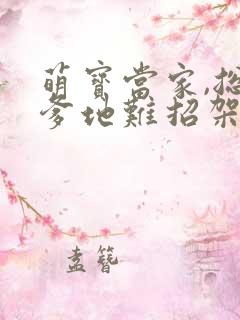 萌寶當家,總
爹地難招架
孟簪